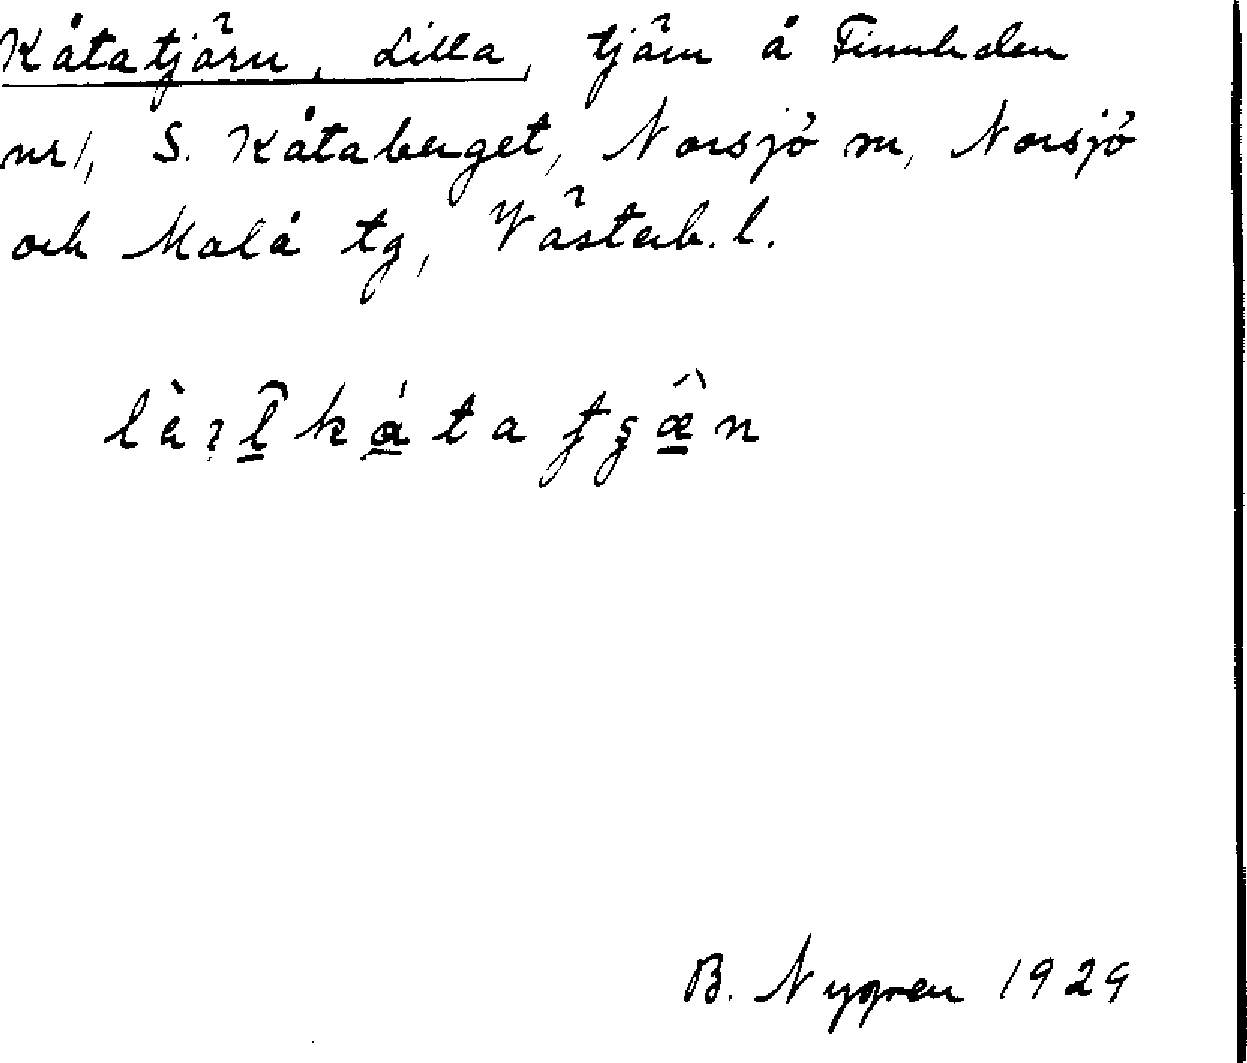 Kåtatjärn, Lilla, tjärn å Finnheden
nr 1, S. Kåtaberget, Norsjö sn, Norsjö
och Malå tg, Västerb. l.
B. Nygren 1929